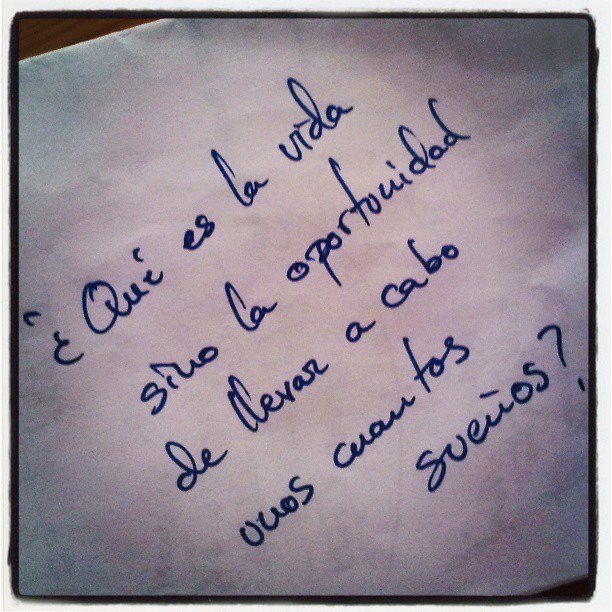 ¿Qué es la vida
sino la oportunidad
de llevar a cabo
unos cuantos
sueños?